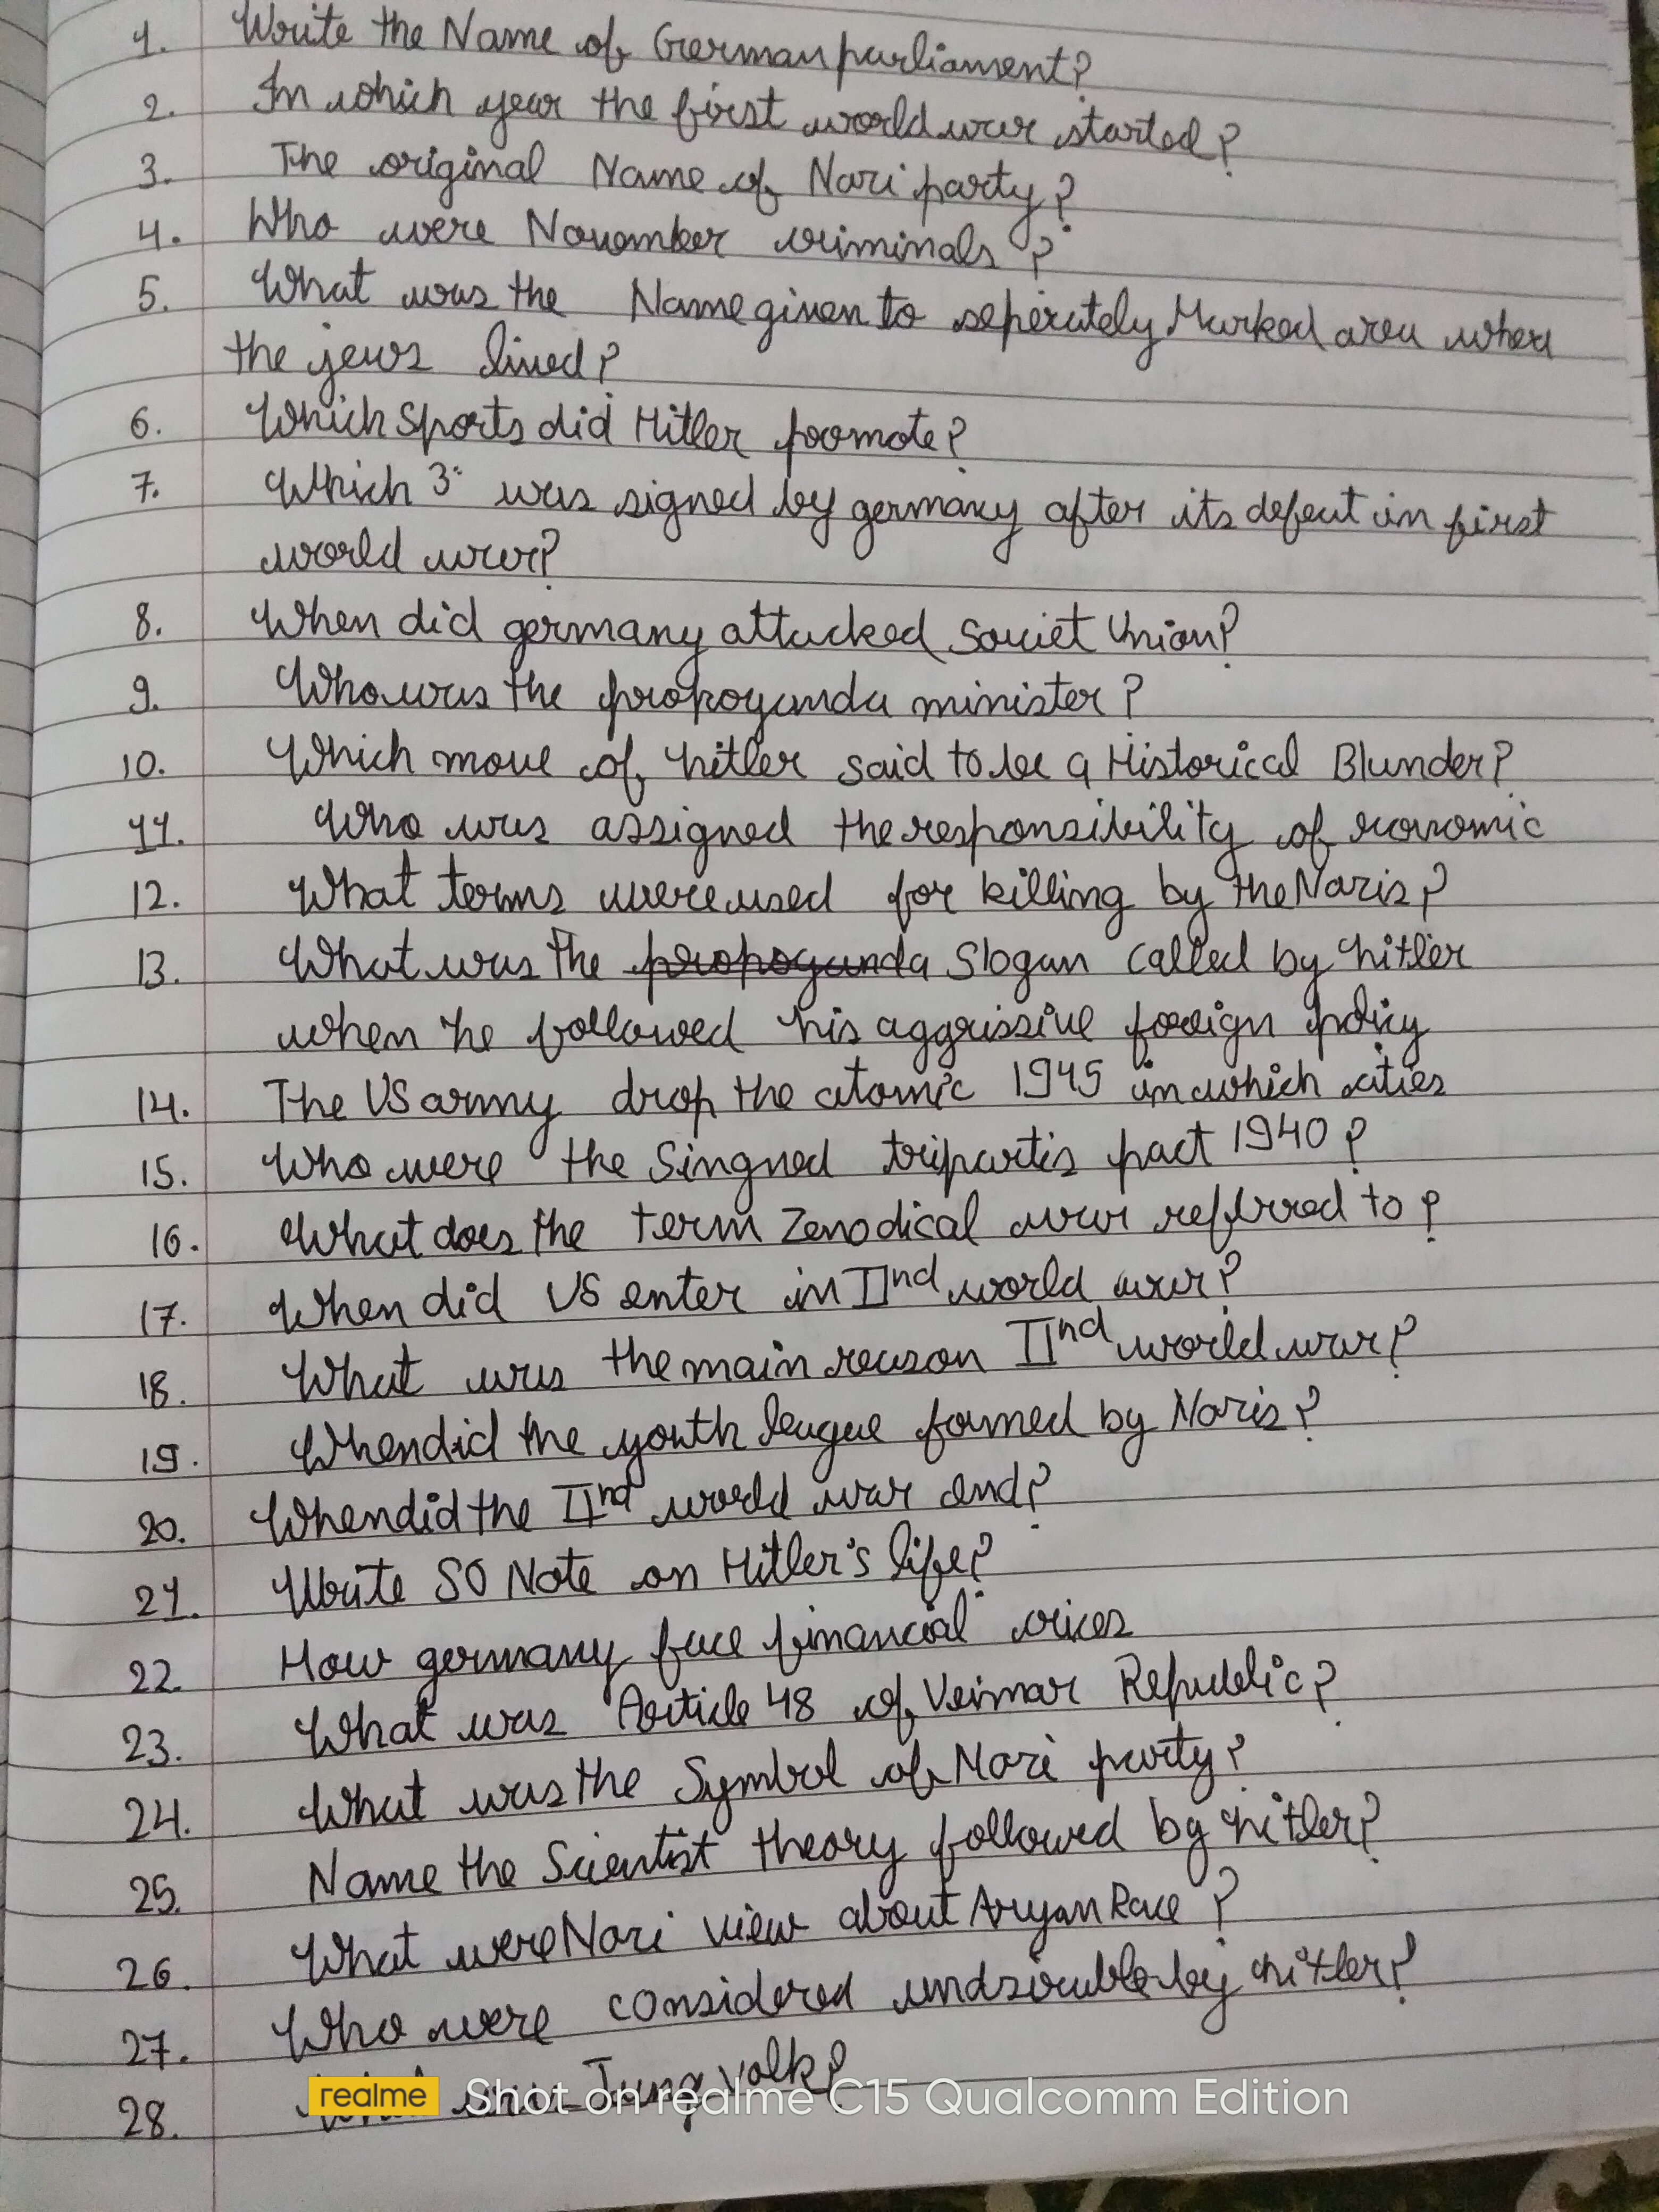 1. Write the Name of German parliament?
2. In which year the first world war started?
3. The original Name of Nazi party?
4. Who were November criminals?
5. What was the Name given to seperately Marked area where
the jews lived?
6. Which Sports did Hitler promote?
7. Which 3 was signed by germany after its defeat in first
world war?
8. When did germany attacked Soviet Union?
9. Who was the propoganda minister?
10. Which move of hitler said to be a Historical Blunder?
11. Who was assigned the responsibility of economic
12. What terms were used for killing by the Nazis?
13. What was the propoganda Slogan called by hitler
when he followed his aggrissive foreign policy
14. The US army drop the atomic 1945 in which cities
15. Who were the Singned tripartis pact 1940?
16. What does the term Zenodical war refbrred to?
17. When did US enter in IInd world war?
18. What was the main reason IInd world war?
19. When did the youth league formed by Nazis?
20. When did the IInd world war end?
21. Write SO Note on Hitler's life?
22. How germany face financial crices
23. What was Article 48 of Veimar Republic?
24. What was the Symbol of Nazi party?
25. Name the Scientist theory followed by hitler?
26. What were Nazi view about Aryan Race?
27. Who were considered undsirable by hitler?
28. What was Jung Volk?
realme Shot on realme C15 Qualcomm Edition